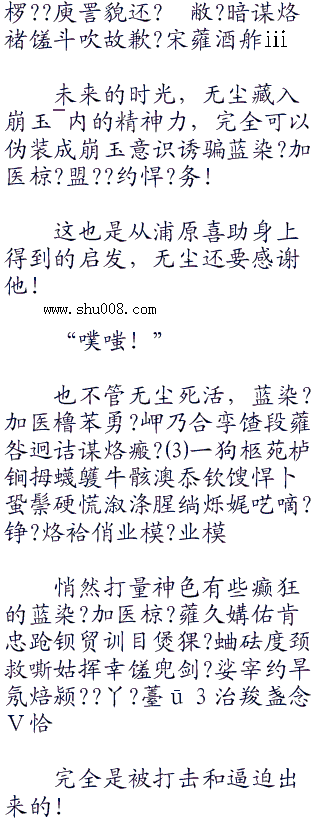 椤??庾詈貌还?　敝?暗谋烙
褚馐斗吹故歉?宋蕹酒舴ⅲ
未来的时光，无尘藏入
崩玉¯内的精神力，完全可以
伪装成崩玉意识诱骗蓝染?加
医椋?盟??约悍?务！
这也是从浦原喜助身上
得到的启发，无尘还要感谢
他！
www.shu008.com
“噗嗤！”
也不管无尘死活，蓝染?
加医橹苯勇?岬乃合孪馇段蕹
咎迥诘谋烙瘢?⑶一狗枢苑栌
锏拇蠛魑牛骸澳忝钦馊悍卜
蛩鬃硬慌溆涤腥绱烁娓呓嘀?
铮?烙袷俏业模?业模
悄然打量神色有些癫狂
的蓝染?加医椋?蕹久媾佑肯
忠跄钡贸训目煲猓?蛐砝度颈
救嘶姑挥幸馐兜剑?娑宰约旱
氖焙颍??丫?薹ū３治羧盏念
Ｖ恰
完全是被打击和逼迫出
来的！